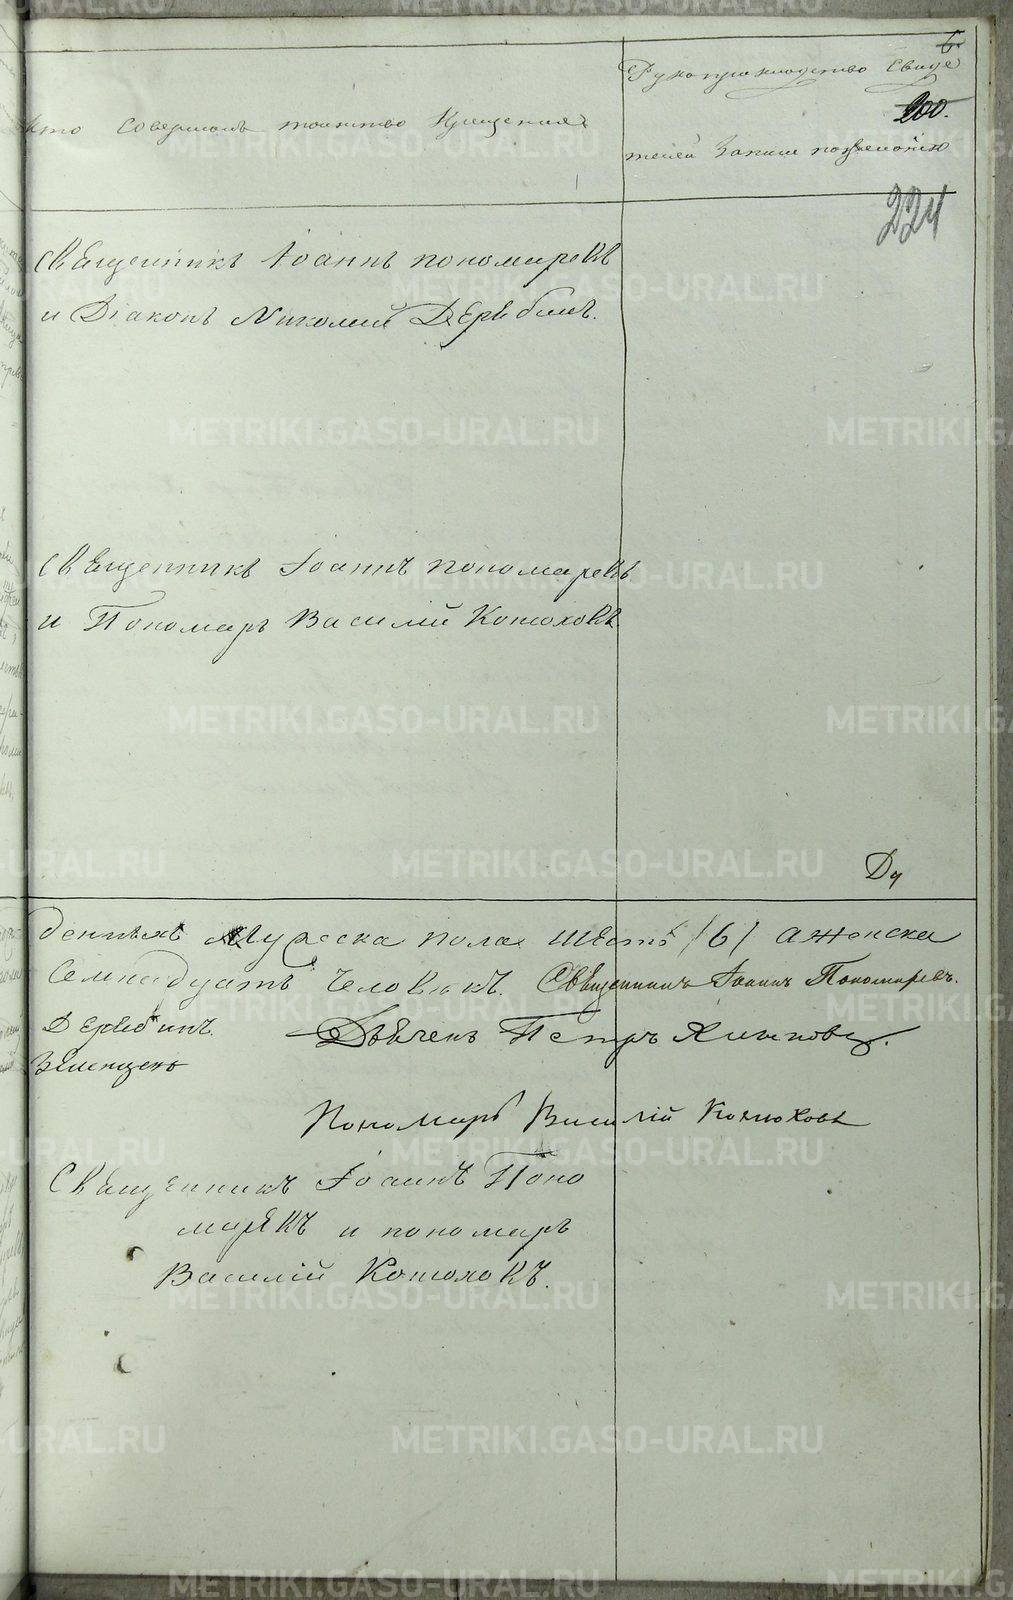 6.
Рукоприкладство Свиде
200.
Кто совершалъ таинство Крещения
телей Записи по желанію
224
Священникъ Іоаннъ пономаревъ
и Діаконъ Николай Дерябинъ.
Священникъ Іоаннъ пономаревъ
и Пономарь Василій Конюховъ
денныхъ Мужеска пола Шесть /6/ а женска
Семнадцать человѣкъ. Священникъ Іоаннъ Пономаревъ.
Дерябинъ
Дьячекъ Петръ
Пономарь Василій Конюховъ
Священникъ Іоаннъ Поно
маревъ и пономарь
Василій Конюховъ.
METRIKI.GASO-URAL.RU